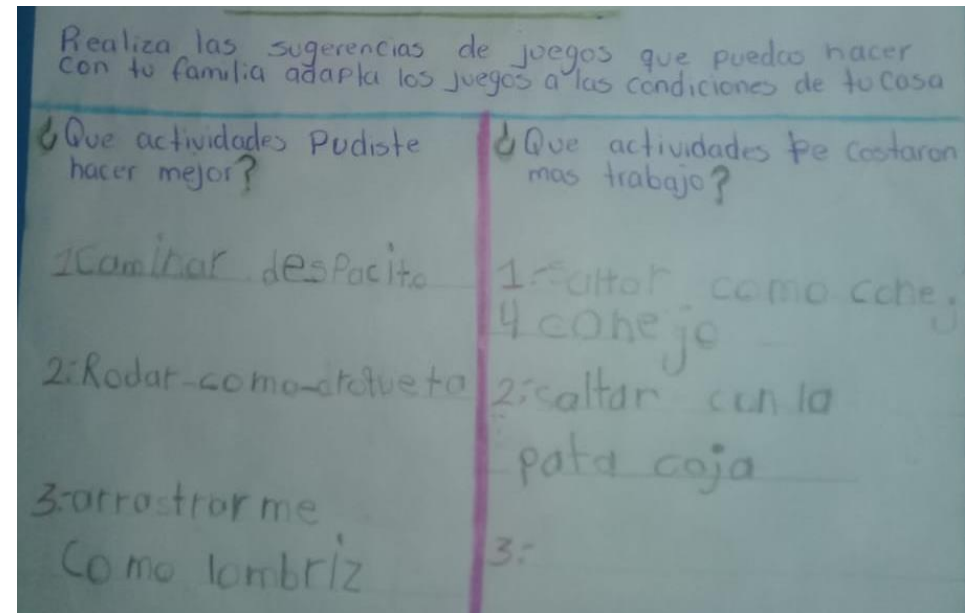 Realiza las sugerencias de juegos que puedas hacer
con tu familia adapta los juegos a las condiciones de tu casa
¿Que actividades Pudiste
hacer mejor?
1 Caminar despacito
2:Rodar-como-croqueta
3:-arrastrarme
Como lombriz
¿Que actividades te costaron
mas trabajo?
1:-saltar como cone,
y conejo
2:-saltar con la
pata coja
3:-